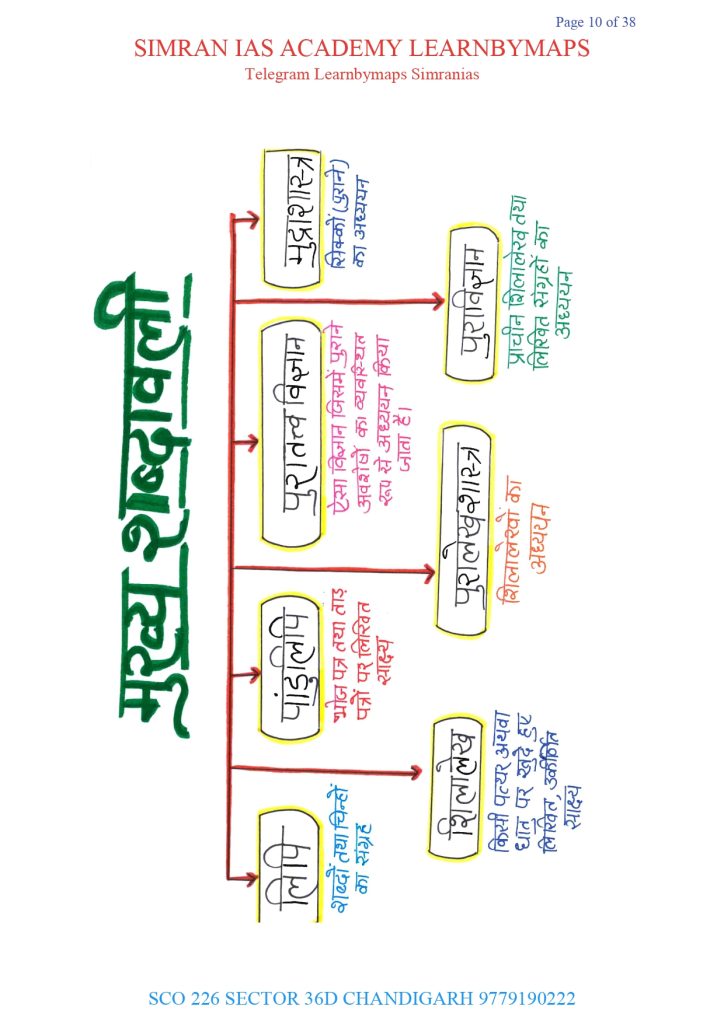 Page 10 of 38
SIMRAN IAS ACADEMY LEARNBYMAPS
Telegram Learnbymaps Simranias
मुख्य शब्दावली
लिपि
शब्दों तथा चिन्हों
का संग्रह
शिलालेख
किसी पत्थर अथवा
धातु पर खुदे हुए
लिखित, उत्कीर्णित
साक्ष्य
पांडुलिपि
भोज पत्र तथा ताड़
पत्रों पर लिखित
साक्ष्य
पुरालेखशास्त्र
शिलालेखों का
अध्ययन
पुरातत्त्व विज्ञान
ऐसा विज्ञान जिसमें पुराने
अवशेषों का व्यवस्थित
रूप से अध्ययन किया
जाता है।
पुराविज्ञान
प्राचीन शिलालेख तथा
लिखित संग्रहों का
अध्ययन
मुद्राशास्त्र
सिक्कों (पुराने)
का अध्ययन
SCO 226 SECTOR 36D CHANDIGARH 9779190222